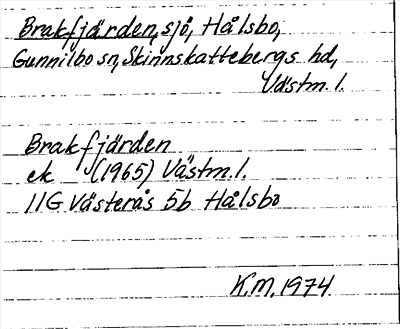 Brakfjärden, sjö, Hålsbo,
Gunnilbo sn, Skinnskattebergs hd,
Västm. l.
Brakfjärden
ek (1965) Västm. l.
11G Västerås 5b Hålsbo
K.M. 1974